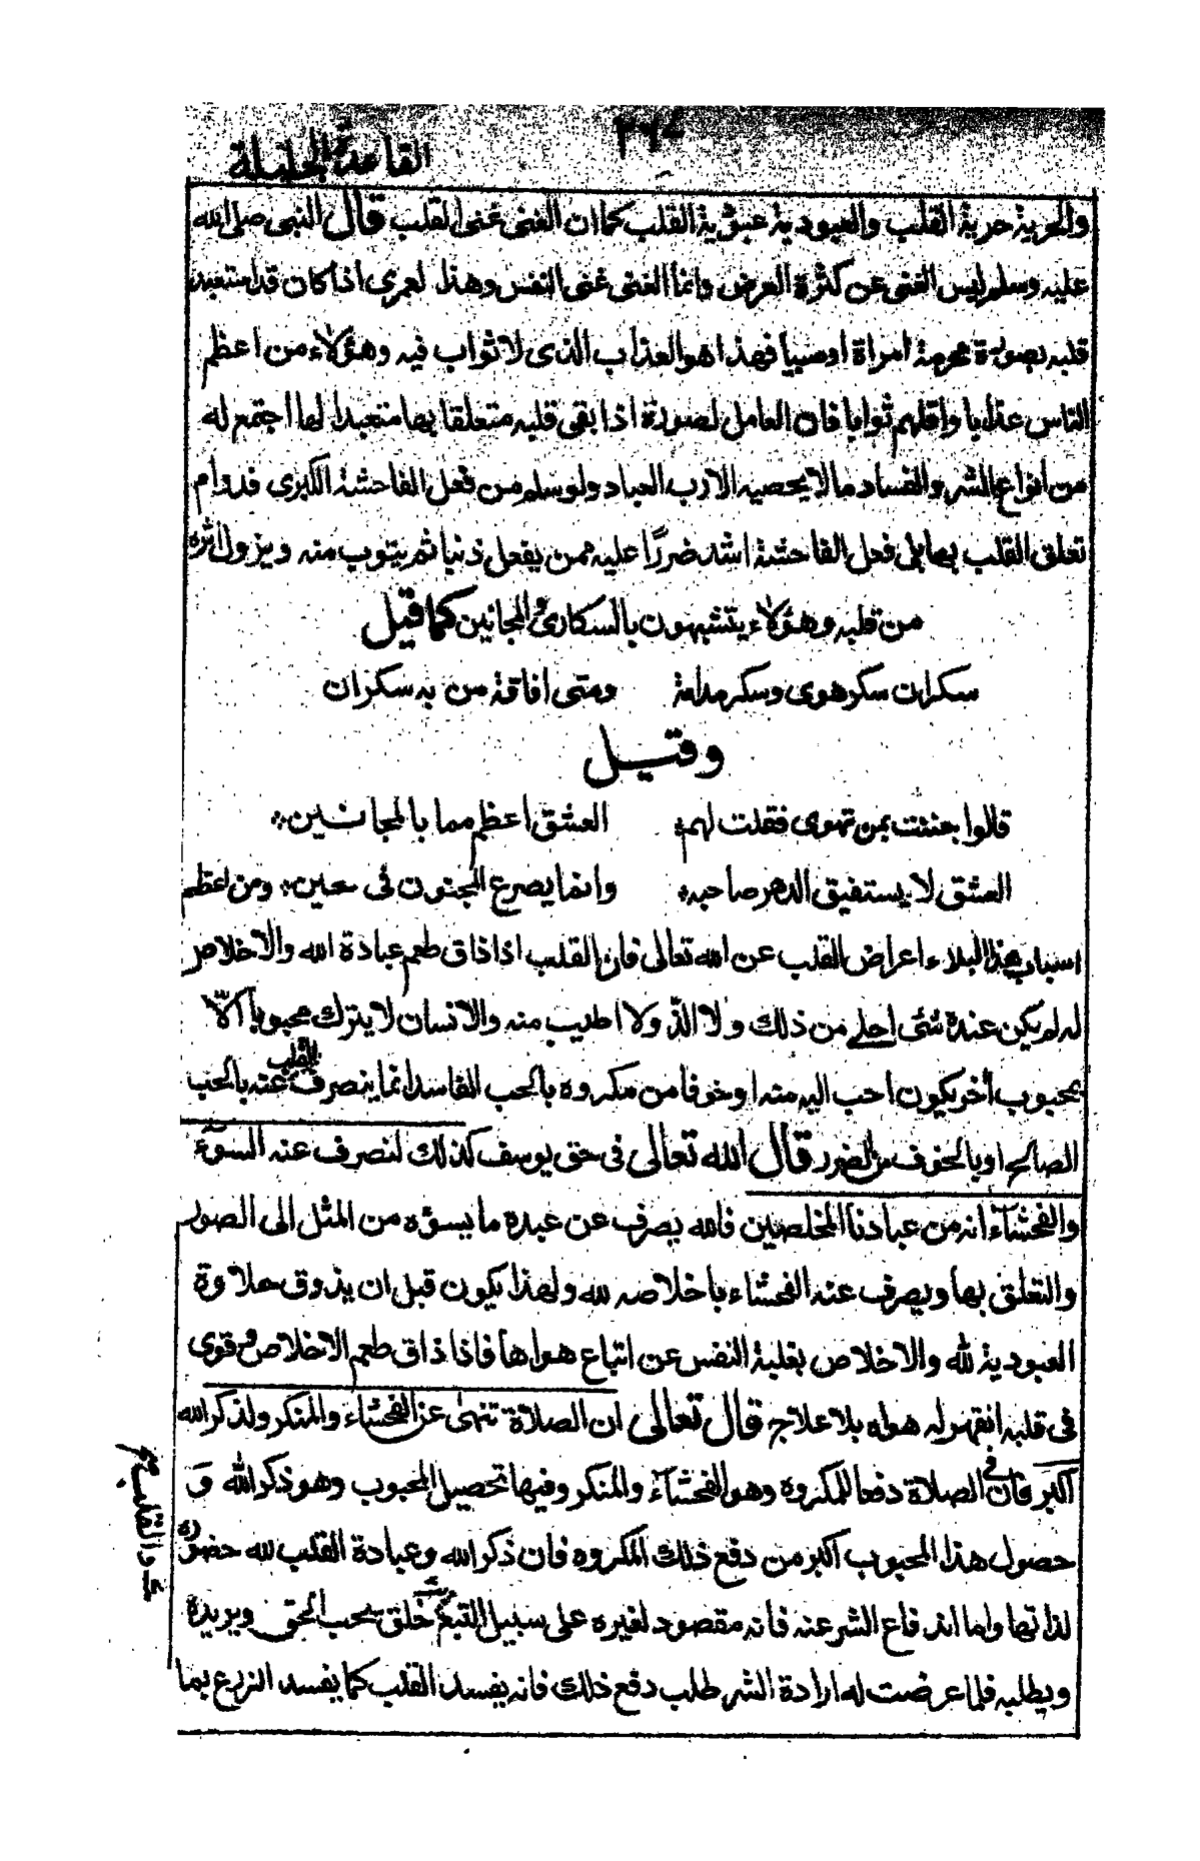 القاعدة الجليلة
والحرية حرية القلب والعبودية عبودية القلب كما ان الغنى غنى القلب قال النبى صلى الله
عليه وسلم ليس الغنى عن كثرة العرض وانما الغنى غنى النفس وهذا لعمرى اذا كان قد استعبد
قلبه بصورة محرمة امراة اوصبيا فهذا هو العذاب الذى لا ثواب فيه وهؤلاء من اعظم
الناس عذابا واقلهم ثوابا فان العامل لصورة اذا بقى قلبه متعلقا بها متعبدا لها اجتمع له
من انواع الشر والفساد ما لا يحصيه الا رب العباد ولو سلم من فعل الفاحشة الكبرى فدوام
تعلق القلب بها بلى فعل الفاحشة اشد ضررًا عليه ممن يفعل ذنبا ثم يتوب منه ويزول اثره
من قلبه وهؤلاء يتشبهون بالسكارى والمجانين كما قيل
سكران سكر هوى وسكر مدامة ومتى افاقة من به سكران
وقيل
قالوا جننت بمن تهوى فقلت لهم العشق اعظم مما بالمجانين
العشق لا يستفيق الدهر صاحبه وانما يصرع المجنون فى حين ومن اعظم
اسباب هذا البلاء اعراض القلب عن الله تعالى فان القلب اذا ذاق طعم عبادة الله والاخلاص
له لم يكن عنده شئى احلى من ذلك ولا الذّ ولا اطيب منه والانسان لا يترك محبوبا الّا
بمحبوب أخر يكون احب اليه منه او خوفا من مكروه بالحب الفاسد انما ينصرف القلب عنه بالحب
الصالح او بالخوف من الضرر قال الله تعالى فى حق يوسف كذلك لنصرف عنه السوء
والفحشآء انه من عبادنا المخلصين فالله يصرف عن عبده ما يسؤه من المثل الى الصور
والتعلق بها ويصرف عنه الفحشاء باخلاصه لله ولهذا يكون قبل ان يذوق حلاوة
العبودية لله والاخلاص بغلبة النفس عن اتباع هواها فاذا ذاق طعم الاخلاص وقوى
فى قلبه انقهر له هواه بلا علاج قال تعالى ان الصلاة تنهى عن الفحشاء والمنكر ولذكر الله
اكبر فان فى الصلاة دفعا للمكروه وهو الفحشآء والمنكر وفيها تحصيل المحبوب وهو ذكر الله و
حصول هذا المحبوب اكبر من دفع ذلك المكروه فان ذكر الله وعبادة القلب لله
لذاتها واما اندفاع الشر عنه فانه مقصود لغيره على سبيل التبع خلق يحب الحق ويريده
ويطلبه فلما عرضت له ارادة الشر طلب دفع ذلك فانه يفسد القلب كما يفسد الزرع بما